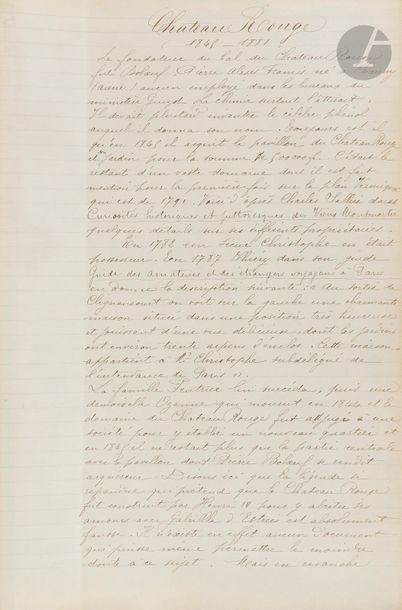 Chateau Rouge
1845 – 1881
Le fondateur du bal du Chateau Rouge
fut Bobœuf Pierre Alexis Francis né à Chauny
(aisne) ancien employé dans les bureaux du
ministère Guizot. La chimie surtout l'attirait.
Il devait plus tard inventer le célèbre phénol
auquel il donna son nom. Toujours est il
qu'en 1845 il acquit le pavillon du Chateau Rouge
et son jardin pour la somme de 50000f. C'était le
restant d'un vaste domaine dont il est fait
mention pour la première fois sur le plan Verniquet
qui est de 1791. Voici d'après Charles Sellier dans
Curiosités historiques et pittoresques du Vieux Montmartre
quelques détails sur ses différent propriétaires.
En 1782 un sieur Christophe en était
possesseur. En 1787 Thiéry dans son guide
Guide des amateurs et des étrangers voyageurs à Paris
en donne la description suivante : « Au sortir de
Clignancourt on voit sur la gauche une charmante
maison située dans une position très heureuse
et jouissant d'une vue délicieuse, dont les jardins
ont environ trente arpens d'enclos. Cette maison
appartient à Mr Christophe subdélégué de
l'intendance de Paris ».
La famille Feutrier lui succéda, puis une
demoiselle Ozanne qui mourut en 1844 et le
domaine du Chateau Rouge fut adjugé à une
société pour y établir un nouveau quartier et
en 1845 il ne restait plus que la partie centrale
avec le pavillon dont Pierre Bobœuf se rendit
acquereur. Disons ici que la légende se
répandue qui prétend que le Chateau Rouge
fut construit par Henri IV pour y abriter ses
amours avec Gabrielle d'Estrées est absolument
fausse. Il n'existe en effet aucun Document
qui puisse même permettre le moindre
doute à ce sujet. Mais en revanche